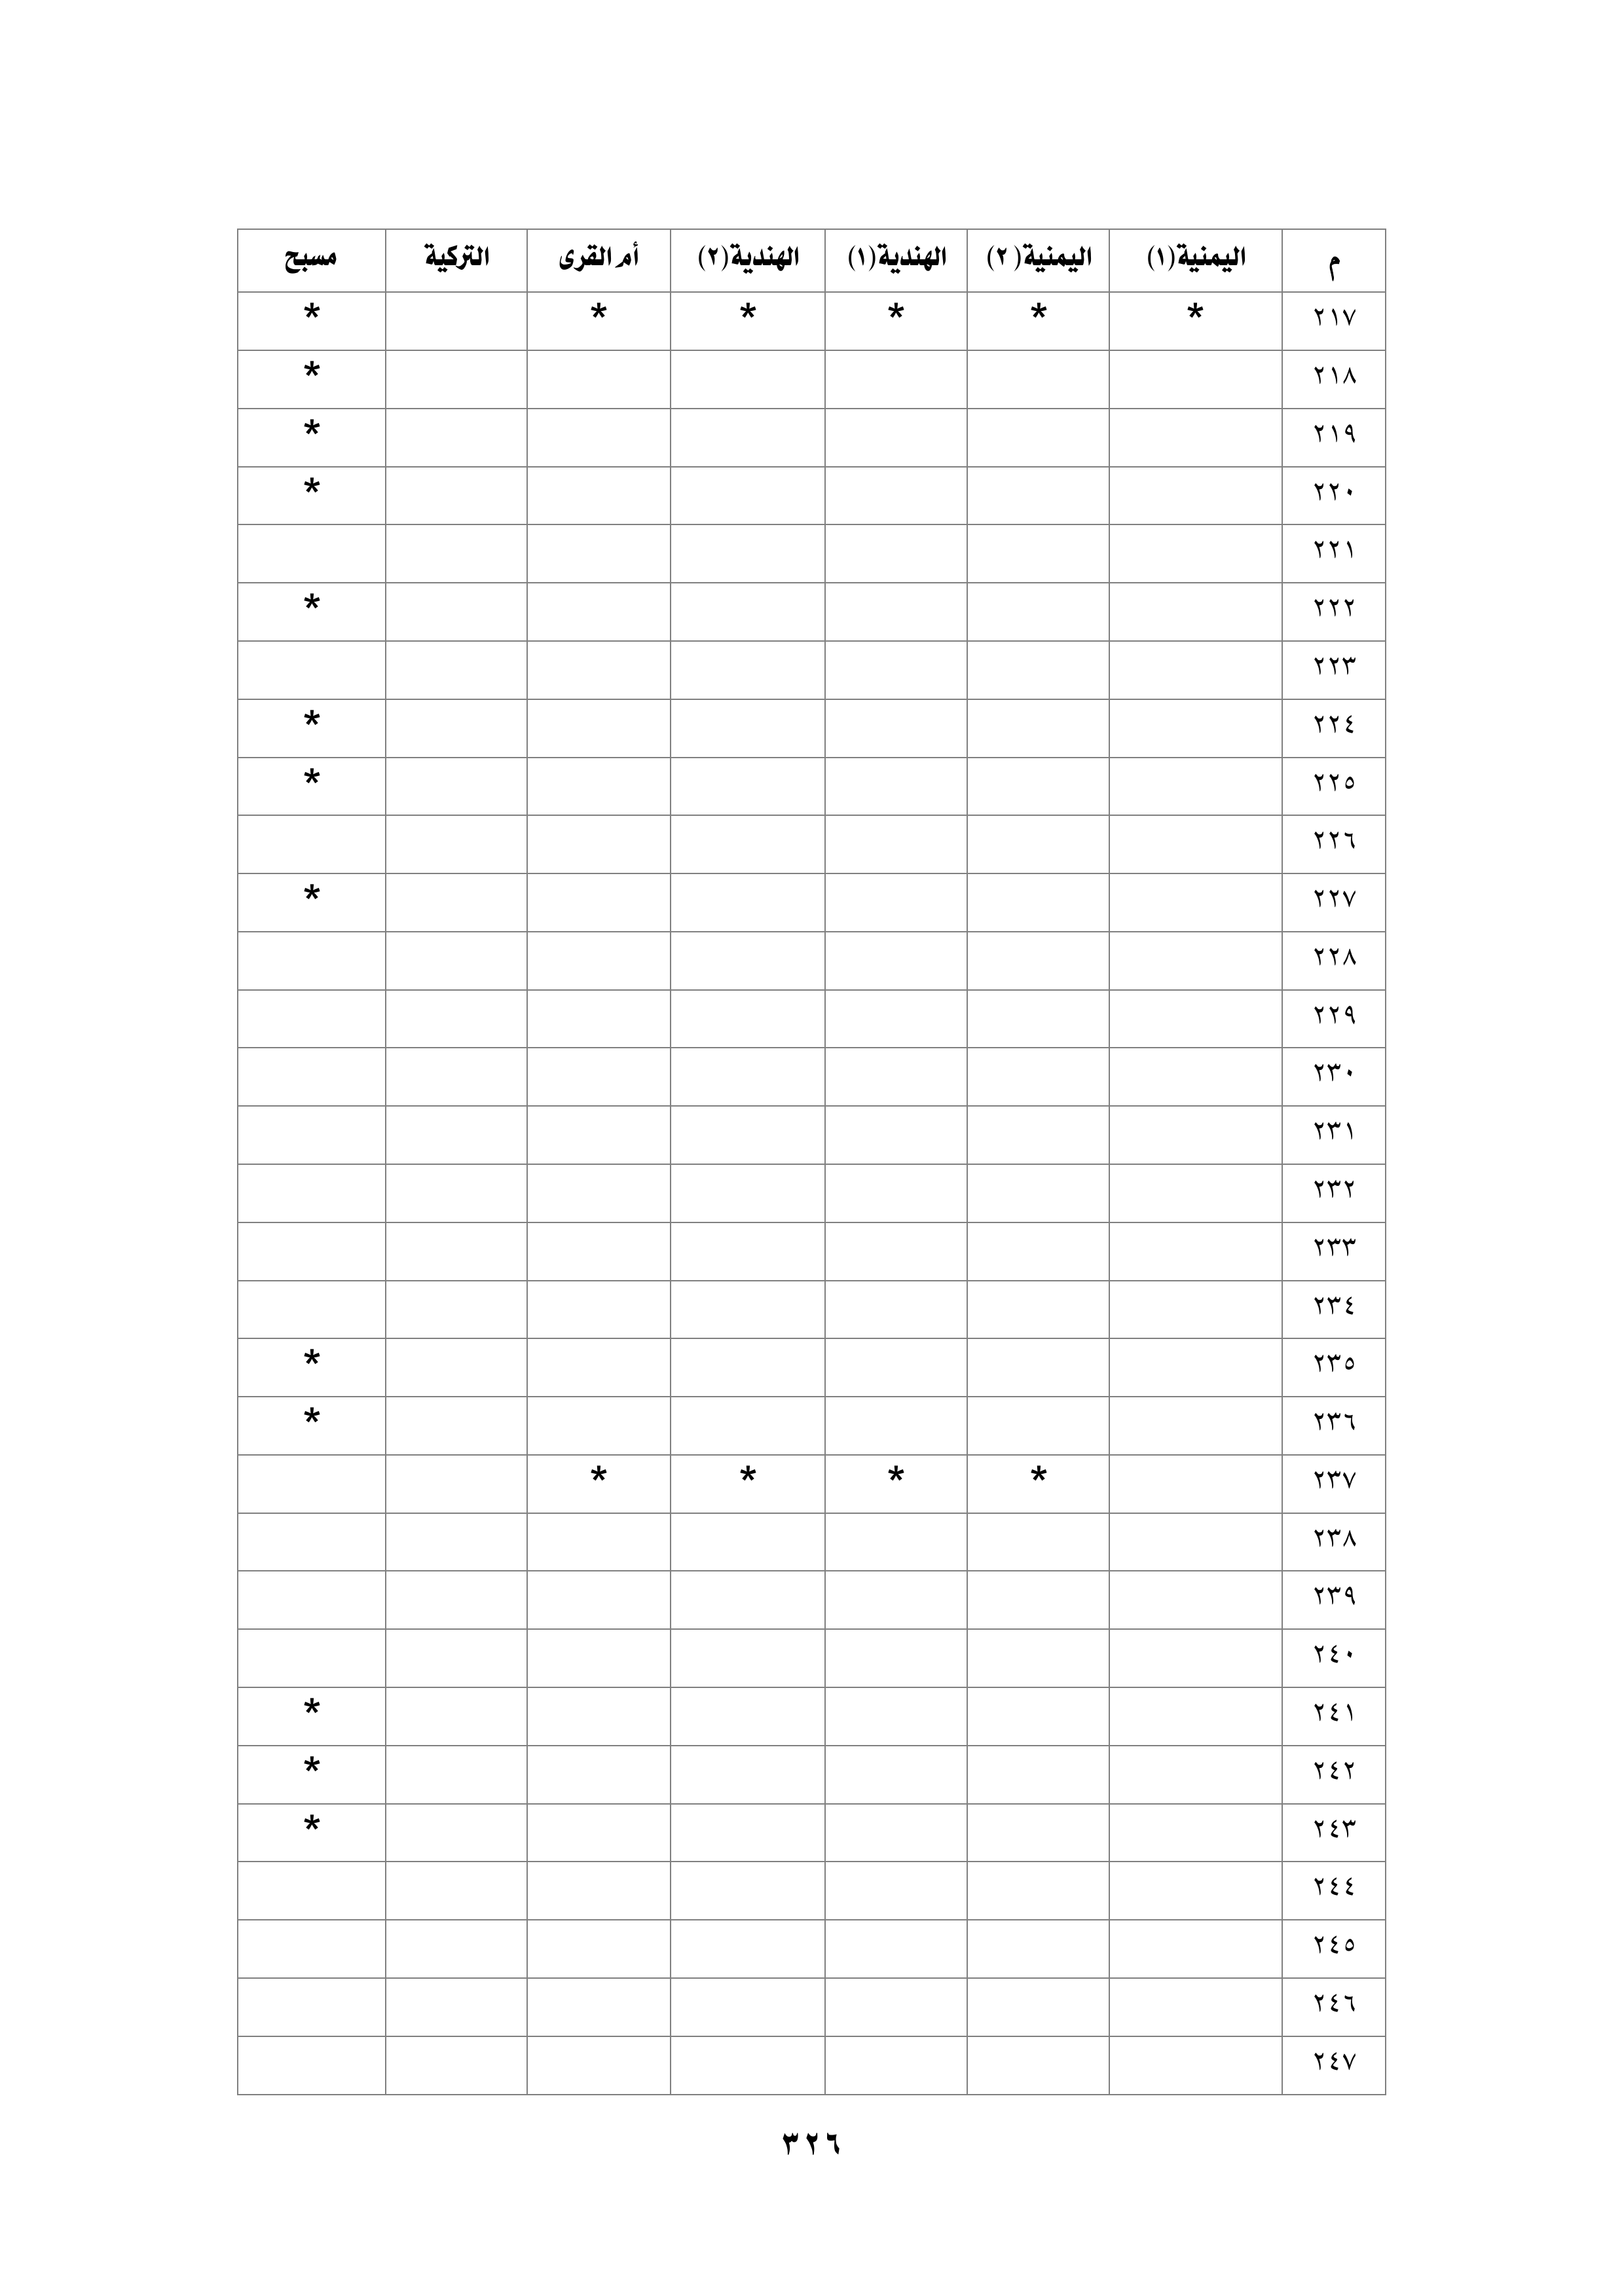 م اليمنية(١) اليمنية( ٢) الهندية(١) الهندية(٢) أم القرى التركية مسبح
٢١٧ * * * * * *
٢١٨ *
٢١٩ *
٢٢٠ *
٢٢١
٢٢٢ *
٢٢٣
٢٢٤ *
٢٢٥ *
٢٢٦
٢٢٧ *
٢٢٨
٢٢٩
٢٣٠
٢٣١
٢٣٢
٢٣٣
٢٣٤
٢٣٥ *
٢٣٦ *
٢٣٧ * * * *
٢٣٨
٢٣٩
٢٤٠
٢٤١ *
٢٤٢ *
٢٤٣ *
٢٤٤
٢٤٥
٢٤٦
٢٤٧
٣٢٦